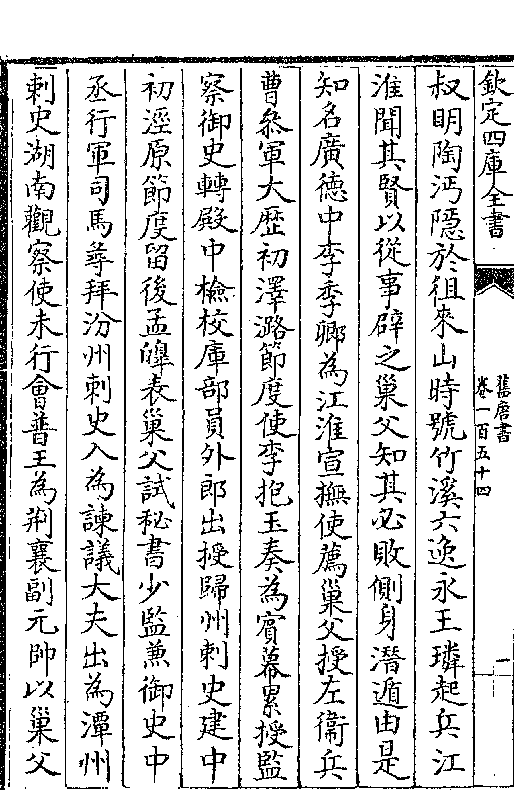 欽定四庫全書
舊唐書
卷一百五十四
一
叔明陶沔隱於徂來山時號竹溪六逸永王璘起兵江
淮聞其賢以從事辟之巢父知其必敗側身潛遁由是
知名廣德中李季卿為江淮宣撫使薦巢父授左衞兵
曹叅軍大歴初澤潞節度使李抱玉奏為賔幕累授監
察御史轉殿中檢校庫部員外郎出授歸州刺史建中
初涇原節度留後孟皥表巢父試秘書少監兼御史中
丞行軍司馬尋拜汾州刺史入為諫議大夫出為潭州
刺史湖南觀察使未行會普王為荆襄副元帥以巢父